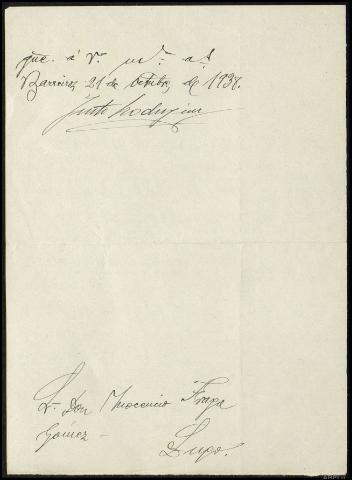 gue. á V. m. a.
Barreiros 21 de Octubre de 1938.
Justo Rodriguez
Sr. Don Inocencio Fraga
Gómez –
Lugo.